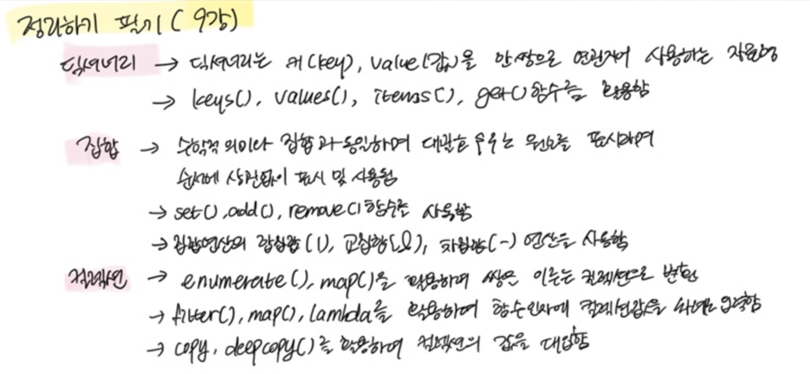 정리하기 필기 (9강)
딕셔너리 → 딕셔너리는 키(key), value(값)을 한 쌍으로 연관지어 사용하는 자료형
→ keys(), values(), items(), get() 함수를 활용함
집합 → 수학적 의미의 집합과 동일하며 원소를 표시하며
순서에 상관없이 표시 및 사용됨
→ set(), add(), remove() 함수를 사용함
→ 집합연산의 합집합(|), 교집합, 차집합(-) 연산을 사용함
컬렉션 → enumerate(), map()을 활용하여 쌍을 이루는 컬렉션으로 변환
→ filter(), map(), lambda를 활용하여 함수인자에 컬렉션값을 입력함
→ copy, deepcopy()를 활용하여 컬렉션의 값을 대입함